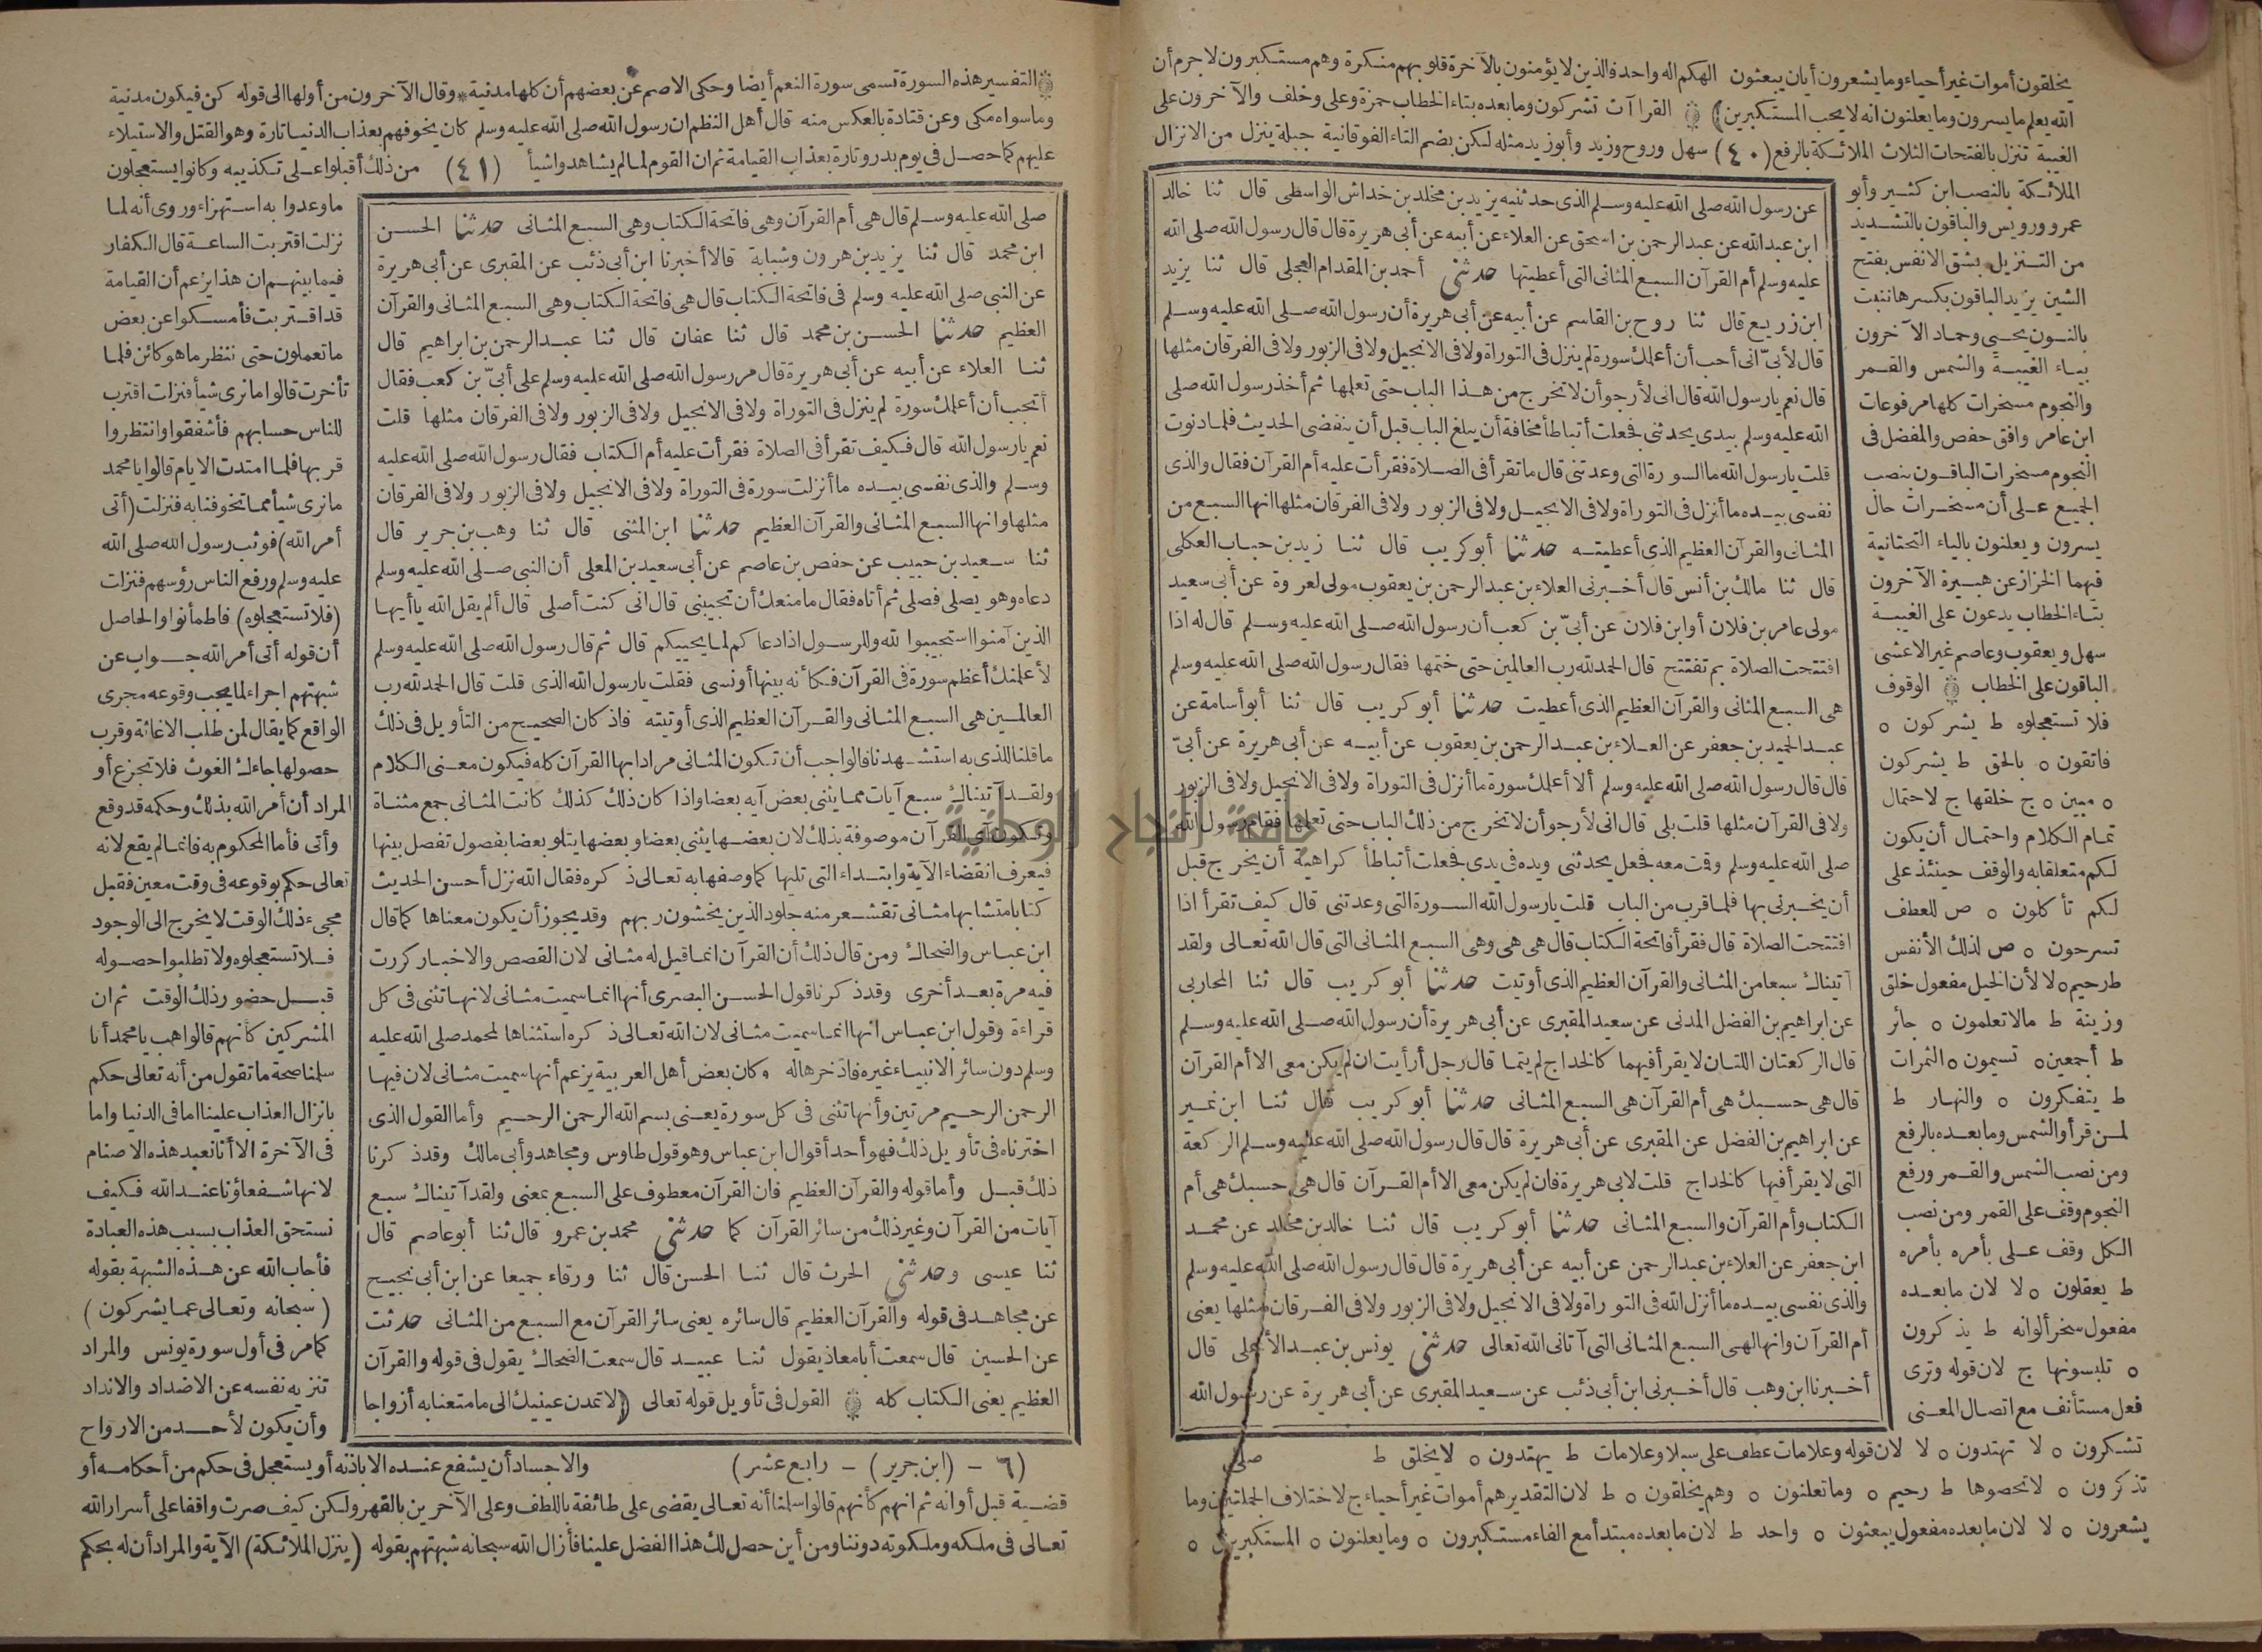 يخلقون أموات غير أحياء وما يشعرون أيان يبعثون الهكم اله واحد فالذين لا يؤمنون بالآخرة قلوبهم منكرة وهم مستكبرون لا جرم أن
الله يعلم ما يسرون وما يعلنون انه لا يحب المستكبرين) القراآت تشركون وما بعده بتاء الخطاب حمزة وعلى وخلف والآخرون على
الغيبة تنزل بالفتحات الثلاث الملائكة بالرفع (٤٠) سهل وروح وزيد وأبو زيد مثله لكن بضم التاء الفوقانية جبلة ينزل من الانزال
الملائكة بالنصب ابن كثير وأبو
عمرو ورويس والباقون بالتشديد
من التنزيل بشق الانفس بفتح
الشين يزيد الباقون بكسرها ننبت
بالنون يحيى وحماد الآخرون
بياء الغيبة والشمس والقمر
والنجوم مسخرات كلها مرفوعات
ابن عامر وافق حفص والمفضل فى
النجوم مسخرات الباقون بنصب
الجميع على أن مسخرات حال
يسرون ويعلنون بالياء التحتانية
فيهما الخزاز عن هبيرة الآخرون
بتاء الخطاب يدعون على الغيبة
سهل ويعقوب وعاصم غير الاعشى
الباقون على الخطاب الوقوف
فلا تستعجلوه ط يشركون ه
فاتقون ه بالحق ط يشركون
ه مبين ه ج خلقها ج لاحتمال
تمام الكلام واحتمال أن يكون
لكم متعلقا به والوقف حينئذ على
لكم تأكلون ه ص للعطف
تسرحون ه ص لذلك الأنفس
ط رحيم ه لا لأن الخيل مفعول خلق
وزينة ط مالا تعلمون ه جائر
ط أجمعين ه تسيمون ه الثمرات
ط يتفكرون ه والنهار ط
لمن قرأ والشمس وما بعده بالرفع
ومن نصب الشمس والقمر ورفع
النجوم وقف على القمر ومن نصب
الكل وقف على بأمره بأمره
ط يعقلون ه لا لان ما بعده
مفعول سخر ألوانه ط يذكرون
ه تلبسونها ج لان قوله وترى
فعل مستأنف مع اتصال المعنى
عن رسول الله صلى الله عليه وسلم الذى حدثنيه يزيد بن مخلد بن خداش الواسطى قال ثنا خالد
ابن عبد الله عن عبد الرحمن بن اسحق عن العلاء عن أبيه عن أبى هريرة قال قال رسول الله صلى الله
عليه وسلم أم القرآن السبع المثانى التى أعطيتها حدثنى أحمد بن المقدام العجلى قال ثنا يزيد
ابن زريع قال ثنا روح بن القاسم عن أبيه عن أبى هريرة أن رسول الله صلى الله عليه وسلم
قال لأبىّ انى أحب أن أعلمك سورة لم ينزل فى التوراة ولا فى الانجيل ولا فى الزبور ولا فى الفرقان مثلها
قال نعم يا رسول الله قال انى لأرجو أن لا تخرج من هذا الباب حتى تعلمها ثم أخذ رسول الله صلى
الله عليه وسلم بيدى يحدثنى فجعلت أتباطأ مخافة أن يبلغ الباب قبل أن ينقضى الحديث فلما دنوت
قلت يا رسول الله ما السورة التى وعدتنى قال ما تقرأ فى الصلاة فقرأت عليه أم القرآن فقال والذى
نفسى بيده ما أنزل فى التوراة ولا فى الانجيل ولا فى الزبور ولا فى الفرقان مثلها انها السبع من
المثانى والقرآن العظيم الذى أعطيته حدثنا أبو كريب قال ثنا زيد بن حباب العكلى
قال ثنا مالك بن أنس قال أخبرنى العلاء بن عبد الرحمن بن يعقوب مولى لعروة عن أبى سعيد
مولى عامر بن فلان أو ابن فلان عن أبىّ بن كعب أن رسول الله صلى الله عليه وسلم قال له اذا
افتتحت الصلاة بم تفتتح قال الحمد لله رب العالمين حتى ختمها فقال رسول الله صلى الله عليه وسلم
هى السبع المثانى والقرآن العظيم الذى أعطيت حدثنا أبو كريب قال ثنا أبو أسامة عن
عبد الحميد بن جعفر عن العلاء بن عبد الرحمن بن يعقوب عن أبيه عن أبى هريرة عن أبىّ
قال قال رسول الله صلى الله عليه وسلم ألا أعلمك سورة ما أنزل فى التوراة ولا فى الانجيل ولا فى الزبور
ولا فى القرآن مثلها قلت بلى قال انى لأرجو أن لا تخرج من ذلك الباب حتى تعلمها فقام رسول الله
صلى الله عليه وسلم وقمت معه فجعل يحدثنى ويده فى يدى فجعلت أتباطأ كراهية أن يخرج قبل
أن يخبرنى بها فلما قرب من الباب قلت يا رسول الله السورة التى وعدتنى قال كيف تقرأ اذا
افتتحت الصلاة قال فقرأ فاتحة الكتاب قال هى هى وهى السبع المثانى التى قال الله تعالى ولقد
آتيناك سبعا من المثانى والقرآن العظيم الذى أوتيت حدثنا أبو كريب قال ثنا المحاربى
عن ابراهيم بن الفضل المدنى عن سعيد المقبرى عن أبى هريرة أن رسول الله صلى الله عليه وسلم
قال الركعتان اللتان لا يقرأ فيهما كالخداج لم يتما قال رجل أرأيت ان لم يكن معى الا أم القرآن
قال هى حسبك هى أم القرآن هى السبع المثانى حدثنا أبو كريب قال ثنا ابن نمير
عن ابراهيم بن الفضل عن المقبرى عن أبى هريرة قال قال رسول الله صلى الله عليه وسلم الركعة
التى لا يقرأ فيها كالخداج قلت لابى هريرة فان لم يكن معى الا أم القرآن قال هى حسبك هى أم
الكتاب وأم القرآن والسبع المثانى حدثنا أبو كريب قال ثنا خالد بن مخلد عن محمد
ابن جعفر عن العلاء بن عبد الرحمن عن أبيه عن أبى هريرة قال قال رسول الله صلى الله عليه وسلم
والذى نفسى بيده ما أنزل الله فى التوراة ولا فى الانجيل ولا فى الزبور ولا فى الفرقان مثلها يعنى
أم القرآن وانها لهى السبع المثانى التى آتانى الله تعالى حدثنى يونس بن عبد الأعلى قال
أخبرنا ابن وهب قال أخبرنى ابن أبى ذئب عن سعيد المقبرى عن أبى هريرة عن رسول الله
تشكرون ه لا تهتدون ه لا لان قوله وعلامات عطف على سبلا وعلامات ط يهتدون ه لا يخلق ط صلى
تذكرون ه لا تحصوها ط رحيم ه وما تعلنون ه وهم يخلقون ه ط لان التقدير هم أموات غير أحياء ج لاختلاف الجملتين وما
يشعرون ه لا لان ما بعده مفعول يبعثون ه واحد ط لان ما بعده مبتدأ مع الفاء مستكبرون ه وما يعلنون ه المستكبرين ه
التفسير هذه السورة تسمى سورة النعم أيضا وحكى الاصم عن بعضهم أن كلها مدنية * وقال الآخرون من أولها الى قوله كن فيكون مدنية
وما سواه مكى وعن قتادة بالعكس منه قال أهل النظم ان رسول الله صلى الله عليه وسلم كان يخوفهم بعذاب الدنيا تارة وهو القتل والاستيلاء
عليهم كما حصل فى يوم بدر وتارة بعذاب القيامة ثم ان القوم لما لم يشاهدوا شيأ (٤١) من ذلك أقبلوا على تكذيبه وكانوا يستعجلون
صلى الله عليه وسلم قال هى أم القرآن وهى فاتحة الكتاب وهى السبع المثانى حدثنا الحسن
ابن محمد قال ثنا يزيد بن هرون وشبابة قالا أخبرنا ابن أبى ذئب عن المقبرى عن أبى هريرة
عن النبى صلى الله عليه وسلم فى فاتحة الكتاب قال هى فاتحة الكتاب وهى السبع المثانى والقرآن
العظيم حدثنا الحسن بن محمد قال ثنا عفان قال ثنا عبد الرحمن بن ابراهيم قال
ثنا العلاء عن أبيه عن أبى هريرة قال مر رسول الله صلى الله عليه وسلم على أبىّ بن كعب فقال
أتحب أن أعلمك سورة لم ينزل فى التوراة ولا فى الانجيل ولا فى الزبور ولا فى الفرقان مثلها قلت
نعم يا رسول الله قال فكيف تقرأ فى الصلاة فقرأت عليه أم الكتاب فقال رسول الله صلى الله عليه
وسلم والذى نفسى بيده ما أنزلت سورة فى التوراة ولا فى الانجيل ولا فى الزبور ولا فى الفرقان
مثلها وانها السبع المثانى والقرآن العظيم حدثنا ابن المثنى قال ثنا وهب بن جرير قال
ثنا سعيد بن حبيب عن حفص بن عاصم عن أبى سعيد بن المعلى أن النبى صلى الله عليه وسلم
دعاه وهو يصلى فصلى ثم أتاه فقال ما منعك أن تجيبنى قال انى كنت أصلى قال ألم يقل الله يا أيها
الذين آمنوا استجيبوا لله وللرسول اذا دعاكم لما يحييكم قال ثم قال رسول الله صلى الله عليه وسلم
لأعلمنك أعظم سورة فى القرآن فكأنه بينها أو نسى فقلت يا رسول الله الذى قلت قال الحمد لله رب
العالمين هى السبع المثانى والقرآن العظيم الذى أوتيته فاذ كان الصحيح من التأويل فى ذلك
ما قلنا للذى به استشهدنا فالواجب أن تكون المثانى مرادا بها القرآن كله فيكون معنى الكلام
ولقد آتيناك سبع آيات مما يثنى بعض آيه بعضا واذا كان ذلك كذلك كانت المثانى جمع مثناة
وتكون آى القرآن موصوفة بذلك لان بعضها يثنى بعضا وبعضها يتلو بعضا بفصول تفصل بينها
فيعرف انقضاء الآية وابتداء التى تليها كما وصفها به تعالى ذكره فقال الله نزل أحسن الحديث
كتابا متشابها مثانى تقشعر منه جلود الذين يخشون ربهم وقد يجوز أن يكون معناها كما قال
ابن عباس والضحاك ومن قال ذلك أن القرآن انما قيل له مثانى لان القصص والاخبار كررت
فيه مرة بعد أخرى وقد ذكرنا قول الحسن البصرى أنها انما سميت مثانى لانها تثنى فى كل
قراءة وقول ابن عباس انها انما سميت مثانى لان الله تعالى ذكره استثناها لمحمد صلى الله عليه
وسلم دون سائر الانبياء غيره فادّخرها له وكان بعض أهل العربية يزعم أنها سميت مثانى لان فيها
الرحمن الرحيم مرتين وأنها تثنى فى كل سورة يعنى بسم الله الرحمن الرحيم وأما القول الذى
اخترناه فى تأويل ذلك فهو أحد أقوال ابن عباس وهو قول طاوس ومجاهد وأبى مالك وقد ذكرنا
ذلك قبل وأما قوله والقرآن العظيم فان القرآن معطوف على السبع بمعنى ولقد آتيناك سبع
آيات من القرآن وغير ذلك من سائر القرآن كما حدثنى محمد بن عمرو قال ثنا أبو عاصم قال
ثنا عيسى وحدثنى الحرث قال ثنا الحسن قال ثنا ورقاء جميعا عن ابن أبى نجيح
عن مجاهد فى قوله والقرآن العظيم قال سائره يعنى سائر القرآن مع السبع من المثانى حدثت
عن الحسين قال سمعت أبا معاذ يقول ثنا عبيد قال سمعت الضحاك يقول فى قوله والقرآن
العظيم يعنى الكتاب كله القول فى تأويل قوله تعالى (لا تمدن عينيك الى ما متعنا به أزواجا
ما وعدوا به استهزاء وروى أنه لما
نزلت اقتربت الساعة قال الكفار
فيما بينهم ان هذا يزعم أن القيامة
قد اقتربت فأمسكوا عن بعض
ما تعملون حتى ننظر ما هو كائن فلما
تأخرت قالوا ما نرى شيأ فنزلت اقترب
للناس حسابهم فأشفقوا وانتظروا
قربها فلما امتدت الايام قالوا يا محمد
ما نرى شيأ مما تخوفنا به فنزلت (أتى
أمر الله) فوثب رسول الله صلى الله
عليه وسلم ورفع الناس رؤسهم فنزلت
(فلا تستعجلوه) فاطمأنوا والحاصل
أن قوله أتى أمر الله جواب عن
شبهتهم اجراء لما يجب وقوعه مجرى
الواقع كما يقال لمن طلب الاغاثة وقرب
حصولها جاءك الغوث فلا تجزع أو
المراد أن أمر الله بذلك وحكمه قد وقع
وأتى فأما المحكوم به فانما لم يقع لانه
تعالى حكم بوقوعه فى وقت معين فقبل
مجىء ذلك الوقت لا يخرج الى الوجود
فلا تستعجلوه ولا تطلبوا حصوله
قبل حضور ذلك الوقت ثم ان
المشركين كأنهم قالوا هب يا محمد أنا
سلمنا صحة ما تقول من أنه تعالى حكم
بانزال العذاب علينا اما فى الدنيا واما
فى الآخرة الا أنا نعبد هذه الاصنام
لانها شفعاؤنا عند الله فكيف
نستحق العذاب بسبب هذه العبادة
فأجاب الله عن هذه الشبهة بقوله
(سبحانه وتعالى عما يشركون)
كما مر فى أول سورة يونس والمراد
تنزيه نفسه عن الاضداد والانداد
وأن يكون لأحد من الارواح
(٦ - (ابن جرير) - رابع عشر) والاجساد أن يشفع عنده الا باذنه أو يستعجل فى حكم من أحكامه أو
قضية قبل أوانه ثم انهم كأنهم قالوا سلمنا أنه تعالى يقضى على طائفة باللطف وعلى الآخرين بالقهر ولكن كيف صرت واقفا على أسرار الله
تعالى فى ملكه وملكوته دوننا ومن أين حصل لك هذا الفضل علينا فأزال الله سبحانه شبهتهم بقوله (ينزل الملائكة) الآية والمراد أن له بحكم
جامعة النجاح الوطنية